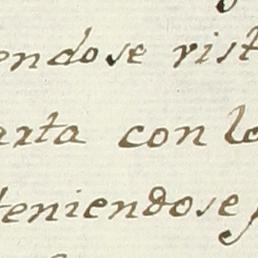 endose vist
arta con lo
teniendose